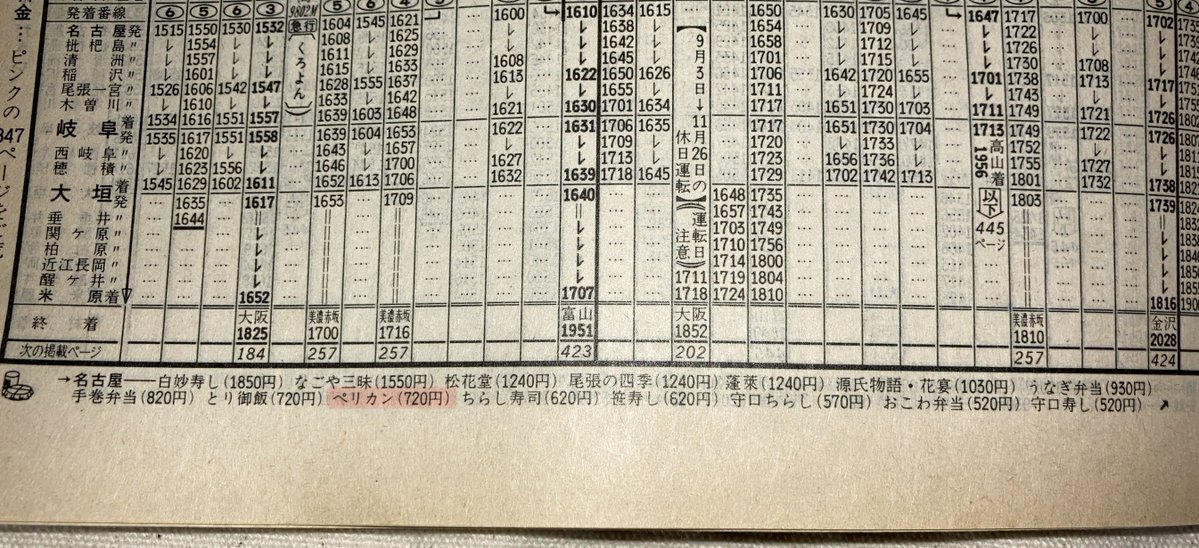 金…ピンクの847ページをご
発着番線 ⑥ ⑤ ⑥ ③ 9802M ⑤ ⑥ ④
名古屋発 1515 1550 1530 1532 急行 1604 1545 1621 … 1600 … 1610 1634 1615 … 1650 … 1630 1705 1645 … 1647 1717 … 1700 … 1702
枇杷島〃 レ 1554 レ レ 1608 レ 1625 … レ … レ 1638 レ … 1654 … レ 1709 レ … レ 1722 … レ … レ
清洲〃 レ 1557 レ レ 1611 レ 1629 … レ … レ 1642 レ … 1658 … レ 1712 レ … レ 1726 … レ … レ
稲沢〃 レ 1601 レ レ 1615 レ 1633 … 1608 … レ 1645 レ … 1701 … レ 1715 レ … レ 1730 … 1708 … レ
尾張一宮〃 1526 1606 1542 1547 1628 1555 1637 … 1613 … 1622 1650 1626 … 1706 … 1642 1720 1655 … 1701 1738 … 1713 … 1717
木曽川〃 レ 1610 レ レ 1633 レ 1642 … レ … レ 1655 レ … 1711 … レ 1724 レ … レ 1743 … レ … レ
岐阜着 1534 1616 1551 1557 1639 1603 1648 … 1621 … 1630 1701 1634 … 1717 … 1651 1730 1703 … 1711 1749 … 1721 … 1726
発 1535 1617 1551 1558 1639 1604 1653 … 1622 … 1631 1706 1635 … 1717 … 1651 1730 1704 … 1713 1749 … 1722 … 1726
西岐阜〃 レ 1620 レ レ 1643 レ 1657 … レ … レ 1709 レ … 1720 … レ 1733 レ … 1752 … レ … レ
穂積〃 レ 1623 1556 レ 1646 レ 1700 … 1627 … レ 1713 レ … 1723 … 1656 1736 レ … 1755 … 1727 … レ
大垣着 1545 1629 1602 1611 1652 1613 1706 … 1632 … 1639 1718 1645 … 1729 … 1702 1742 1713 … 1801 … 1732 … 1738
発 … 1635 … 1617 1653 … 1709 … … … 1640 … … 1648 1735 … … … … … 1803 … … … 1739
垂井〃 … 1644 … 1657 1743
関ケ原〃 1703 1749
柏原〃 1710 1756
近江長岡〃 1714 1800
醒ケ井〃 1711 1719 1804
米原着 1652 1707 1718 1724 1810 1816
(くろよん)
【9月3日→11月26日の休日運転】(運転日注意)
高山着 1956 以下 445ページ
終着 大阪 1825 美濃赤坂 1700 美濃赤坂 1716 富山 1951 大阪 1852 美濃赤坂 1810 金沢 2028
次の掲載ページ 184 257 257 423 202 257 424
→名古屋――白妙寿し(1850円) なごや三昧(1550円) 松花堂(1240円) 尾張の四季(1240円) 蓬莱(1240円) 源氏物語・花宴(1030円) うなぎ弁当(930円)
手巻弁当(820円) とり御飯(720円) ペリカン(720円) ちらし寿司(620円) 笹寿し(620円) 守口ちらし(570円) おこわ弁当(520円) 守口寿し(520円) ↗